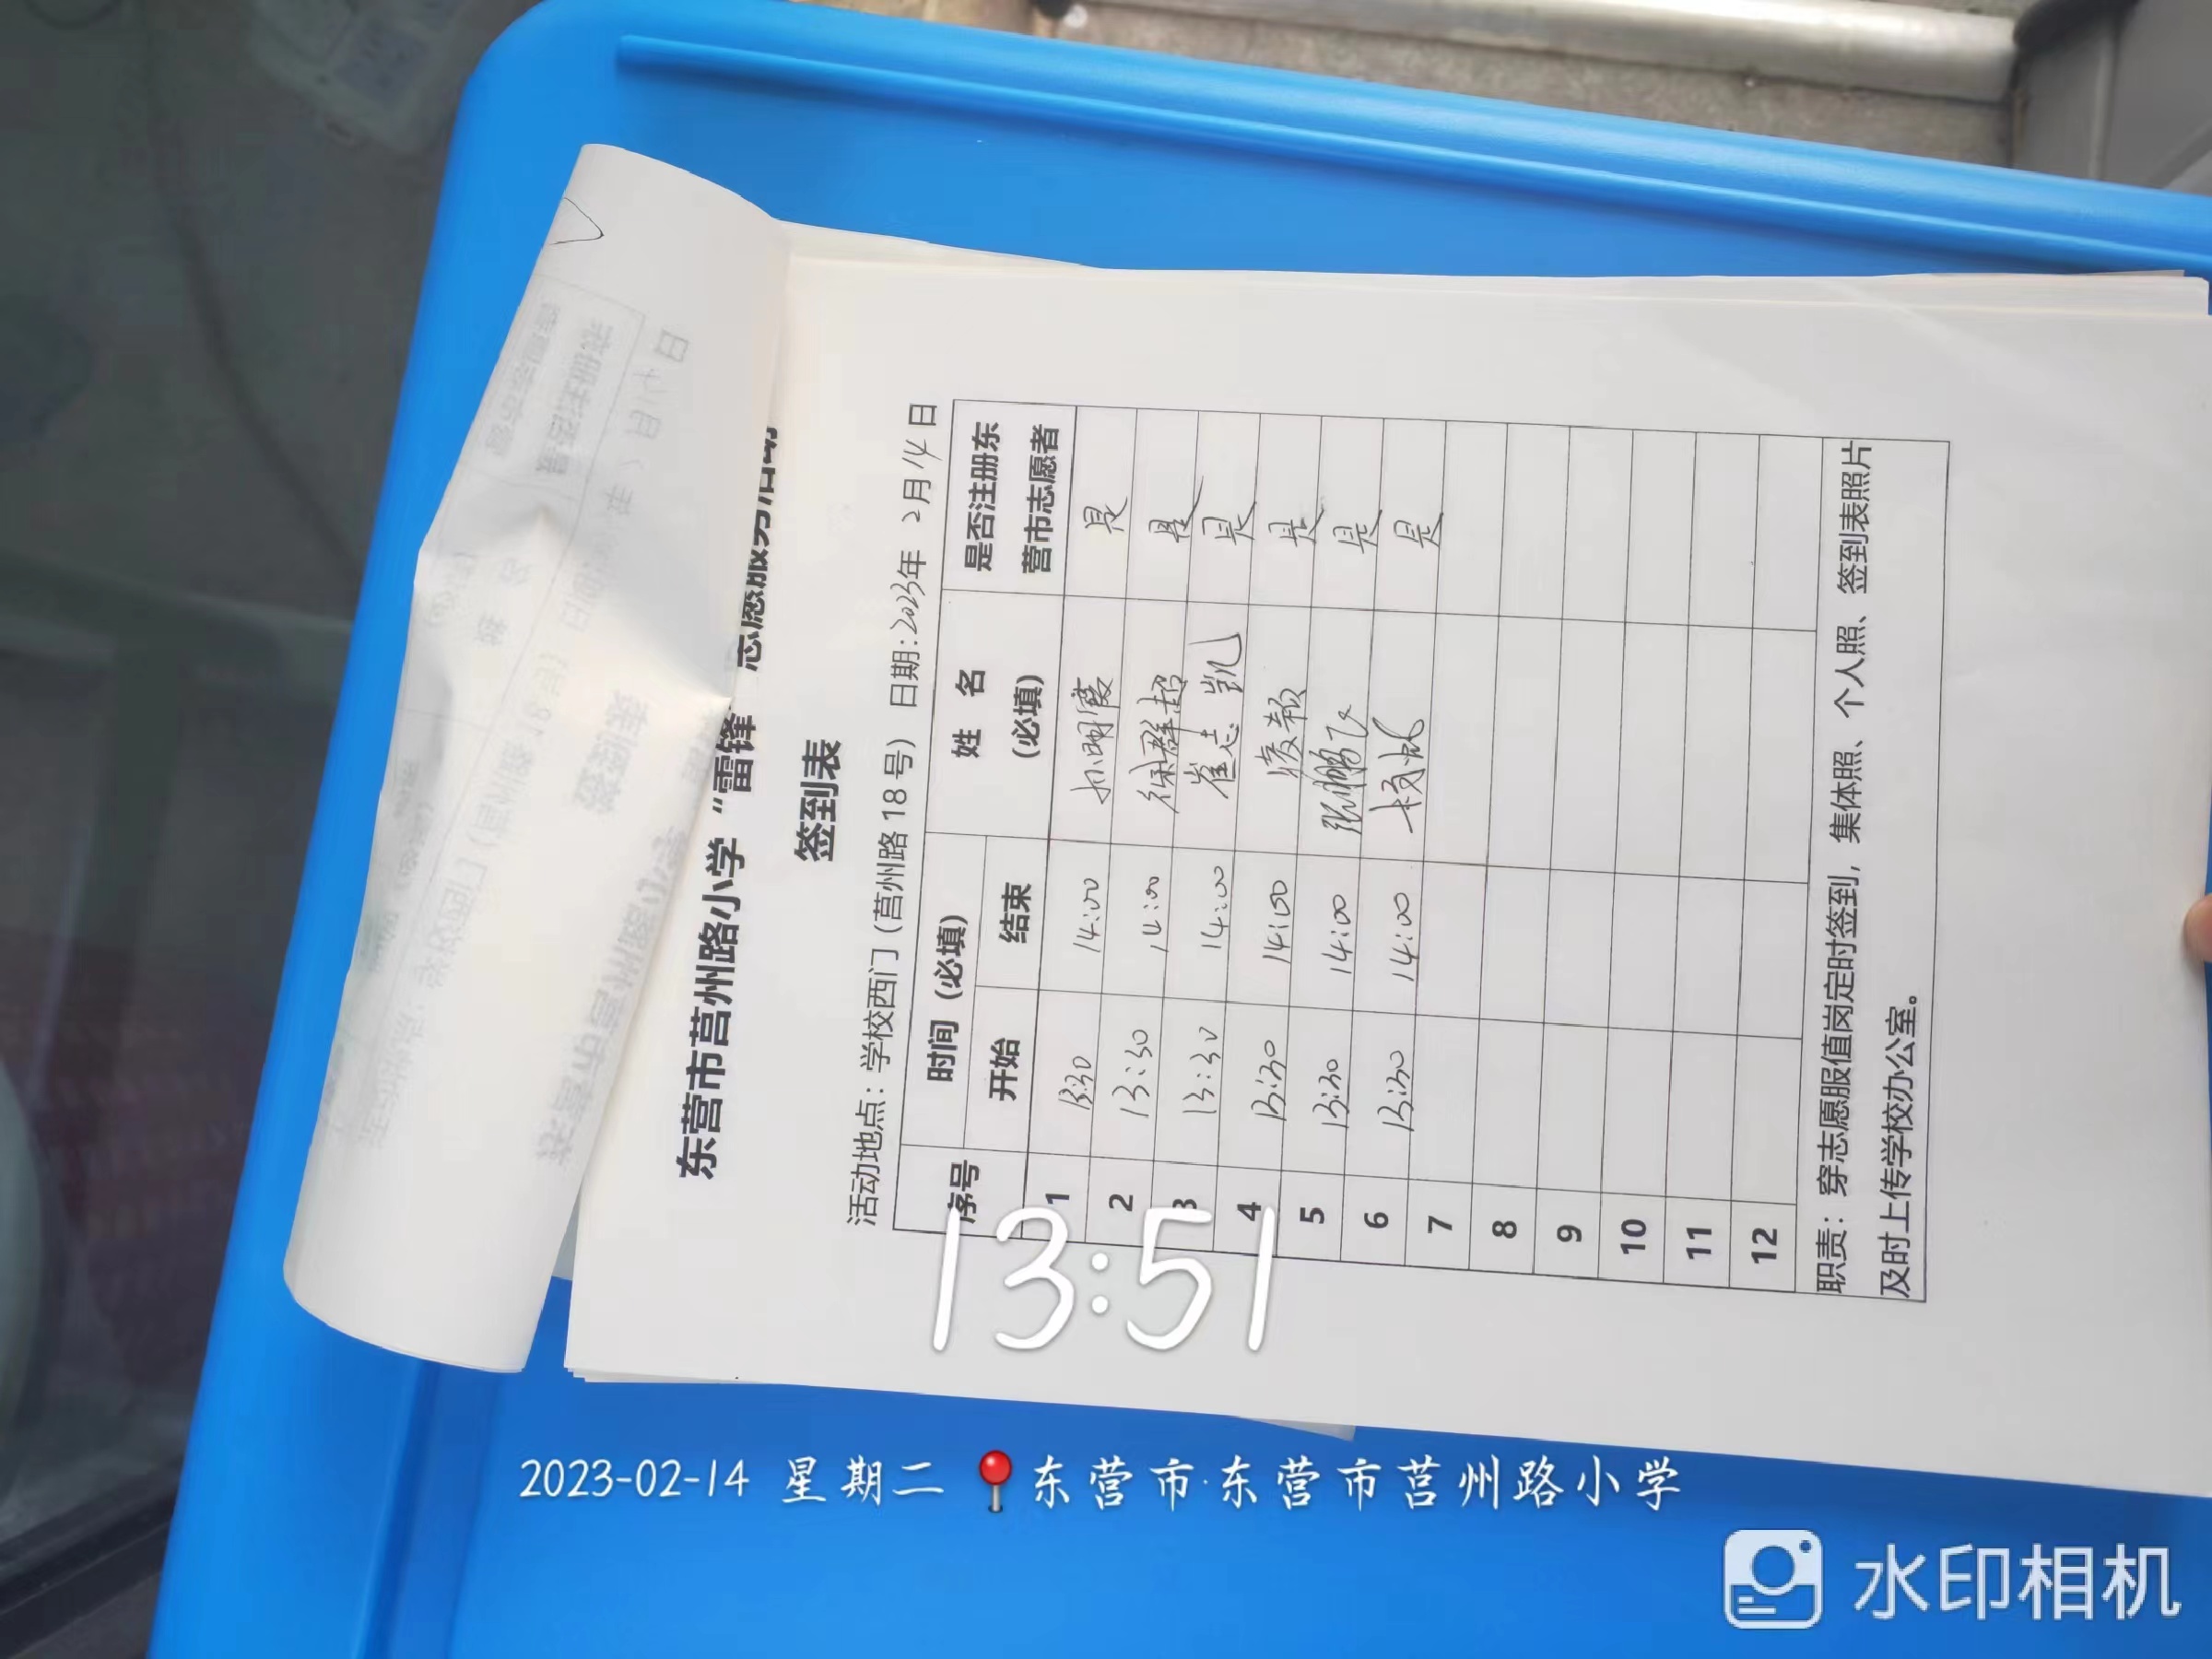 东营市莒州路小学“雷锋”志愿服务活动
签到表
活动地点：学校西门（莒州路 18 号） 日期：2023年 2月 14日
序号 时间（必填） 姓 名（必填） 是否注册东营市志愿者
开始 结束
1 13:30 14:00 是
2 13:30 14:00 徐群超 是
3 13:30 14:00 崔志凯 是
4 13:30 14:00 是
5 13:30 14:00 张鹏飞 是
6 13:30 14:00 是
7
8
9
10
11
12
职责：穿志愿服值岗定时签到，集体照、个人照、签到表照片
及时上传学校办公室。
13:51
2023-02-14 星期二 东营市·东营市莒州路小学
水印相机